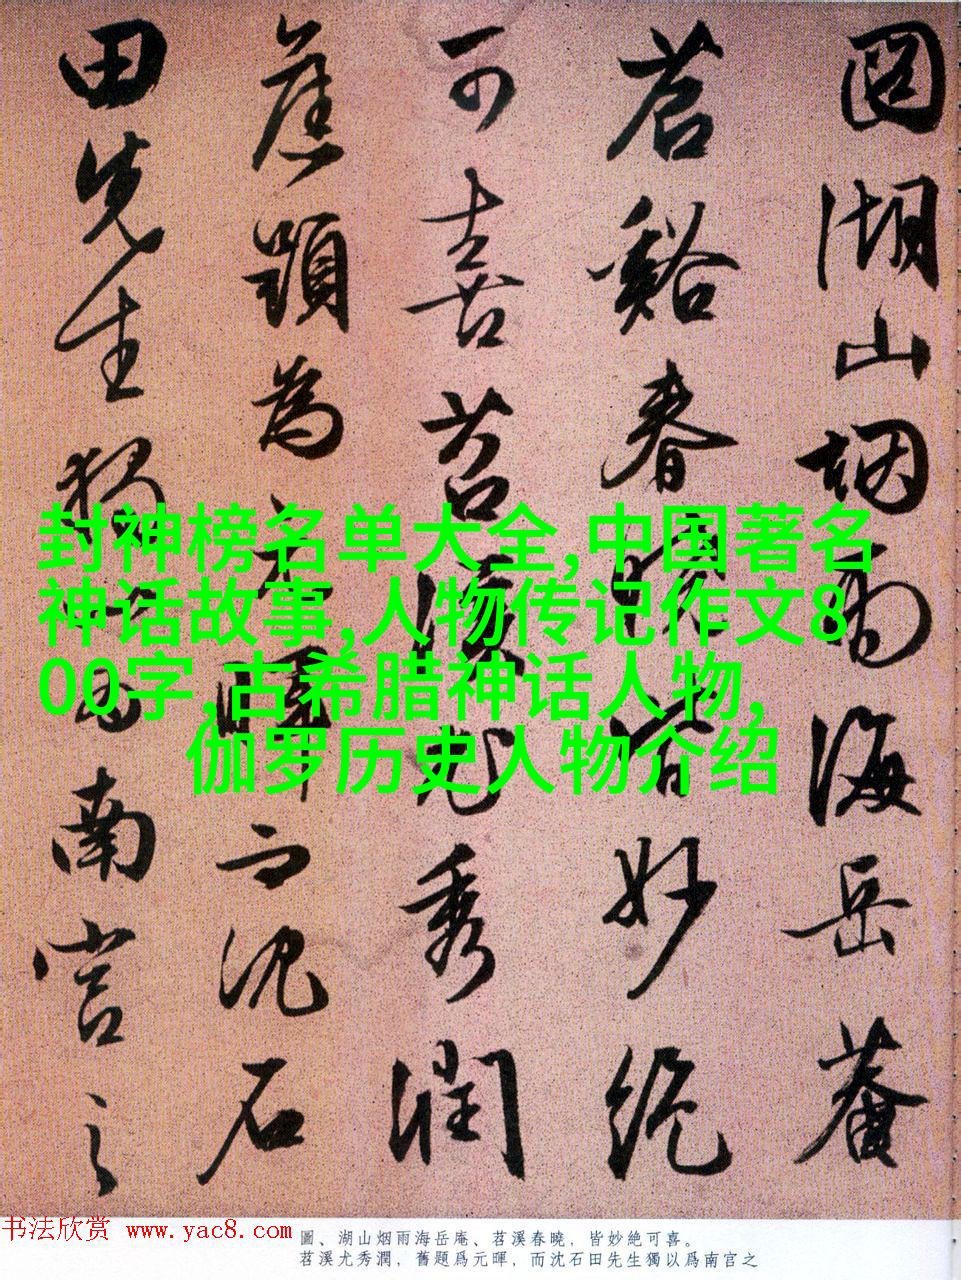 圖湖山烟雨海岳菴
苕谿春曉皆妙絶
可喜苕溪尤秀潤
舊題為元暉而沈石
田先生獨以為南宫之
封神榜名单大全,中国著名
神话故事,人物传记作文8
00字,古希腊神话人物,
伽罗历史人物介绍
书法欣赏 www.yac8.com
圖、湖山烟雨海岳庵、苕溪春曉,皆妙絶可喜。
苕溪尤秀潤,舊題爲元暉,而沈石田先生獨以爲南宫之